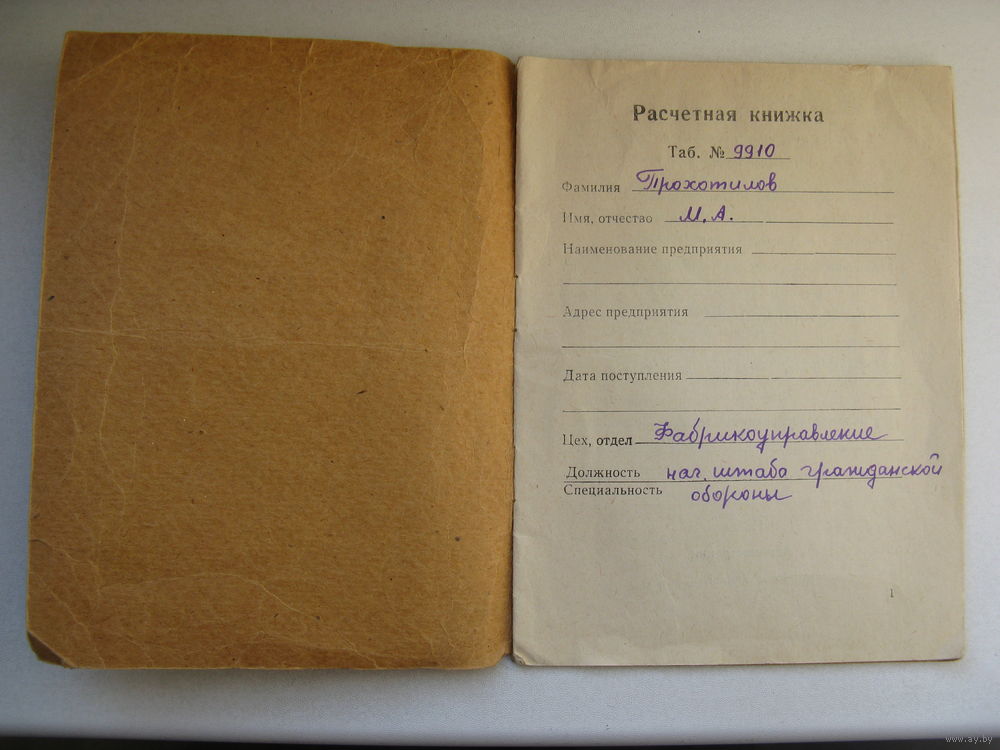 Расчетная книжка
Таб. № 9910
Фамилия Прохотилов
Имя, отчество М. А.
Наименование предприятия
Адрес предприятия
Дата поступления
Цех, отдел Фабрикоуправление
Должность нач. штаба гражданской
Специальность обороны
1
www.ay.by